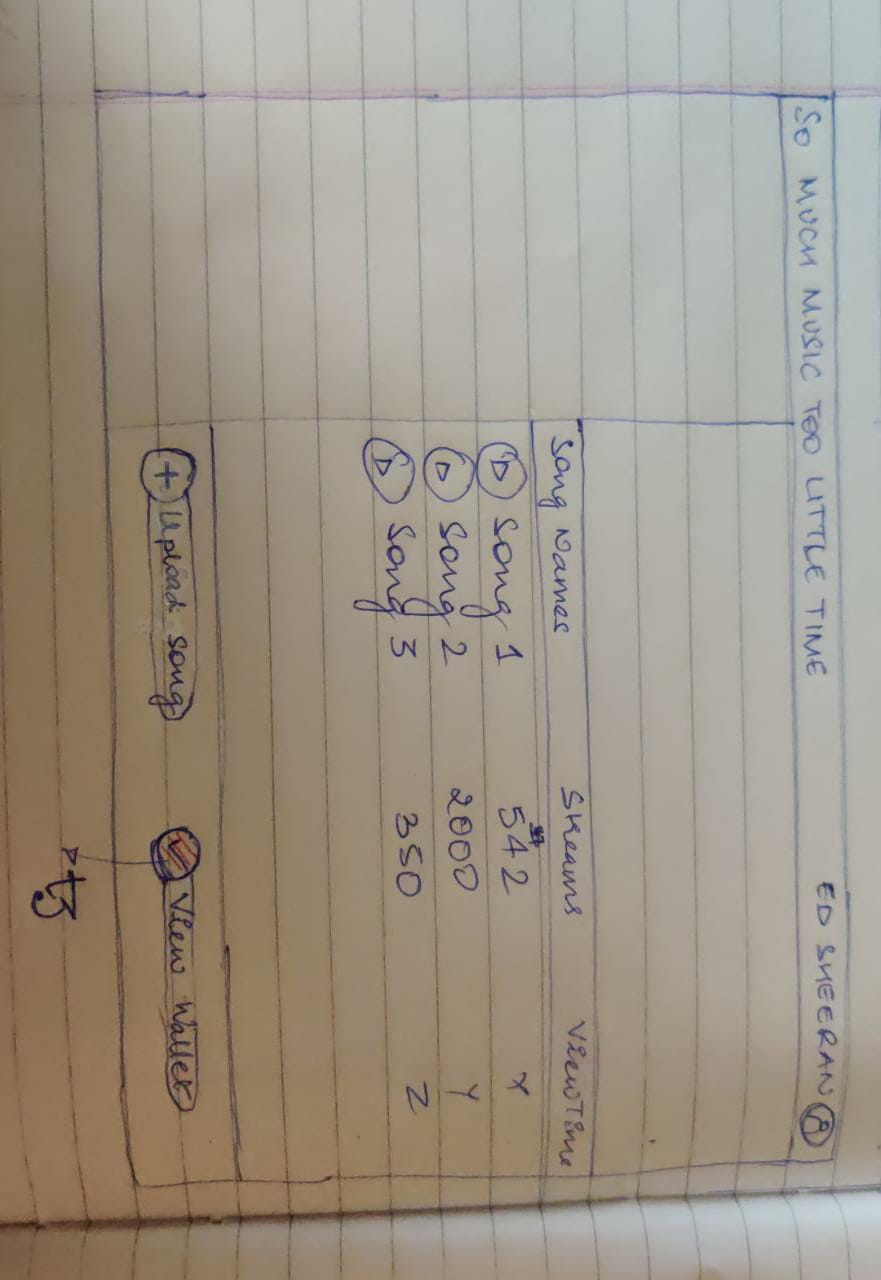 SO MUCH MUSIC TOO LITTLE TIME ED SHEERAN
Song Names Streams ViewTime
Song 1 542 X
Song 2 2000 Y
Song 3 350 Z
+ Upload Song View Wallet